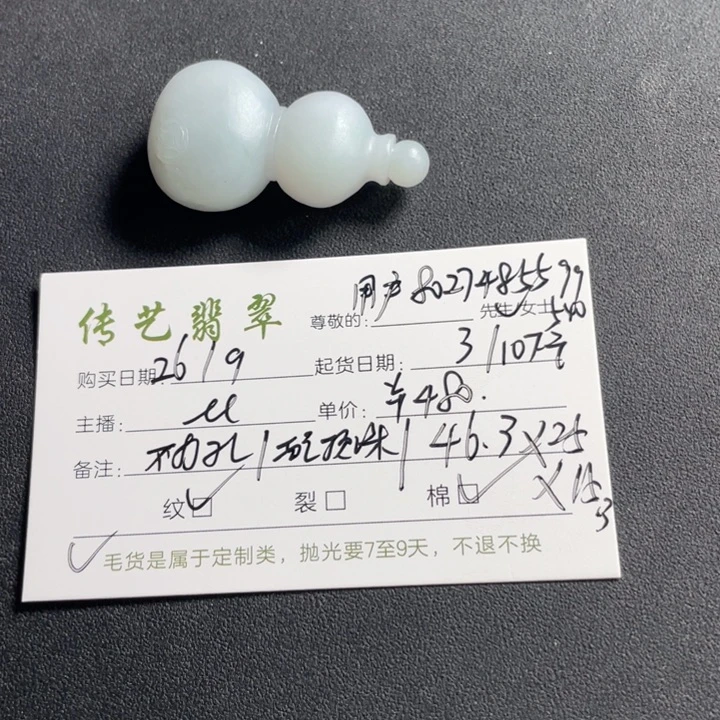 传艺翡翠
尊敬的: 用户8027485599 先生/女士
购买日期: 26/9 起货日期: 3/107号
主播: 单价: ¥480.
备注: 不打孔/ 46.3×25×15
纹☑ 裂☐ 棉☑
✓毛货是属于定制类，抛光要7至9天，不退不换